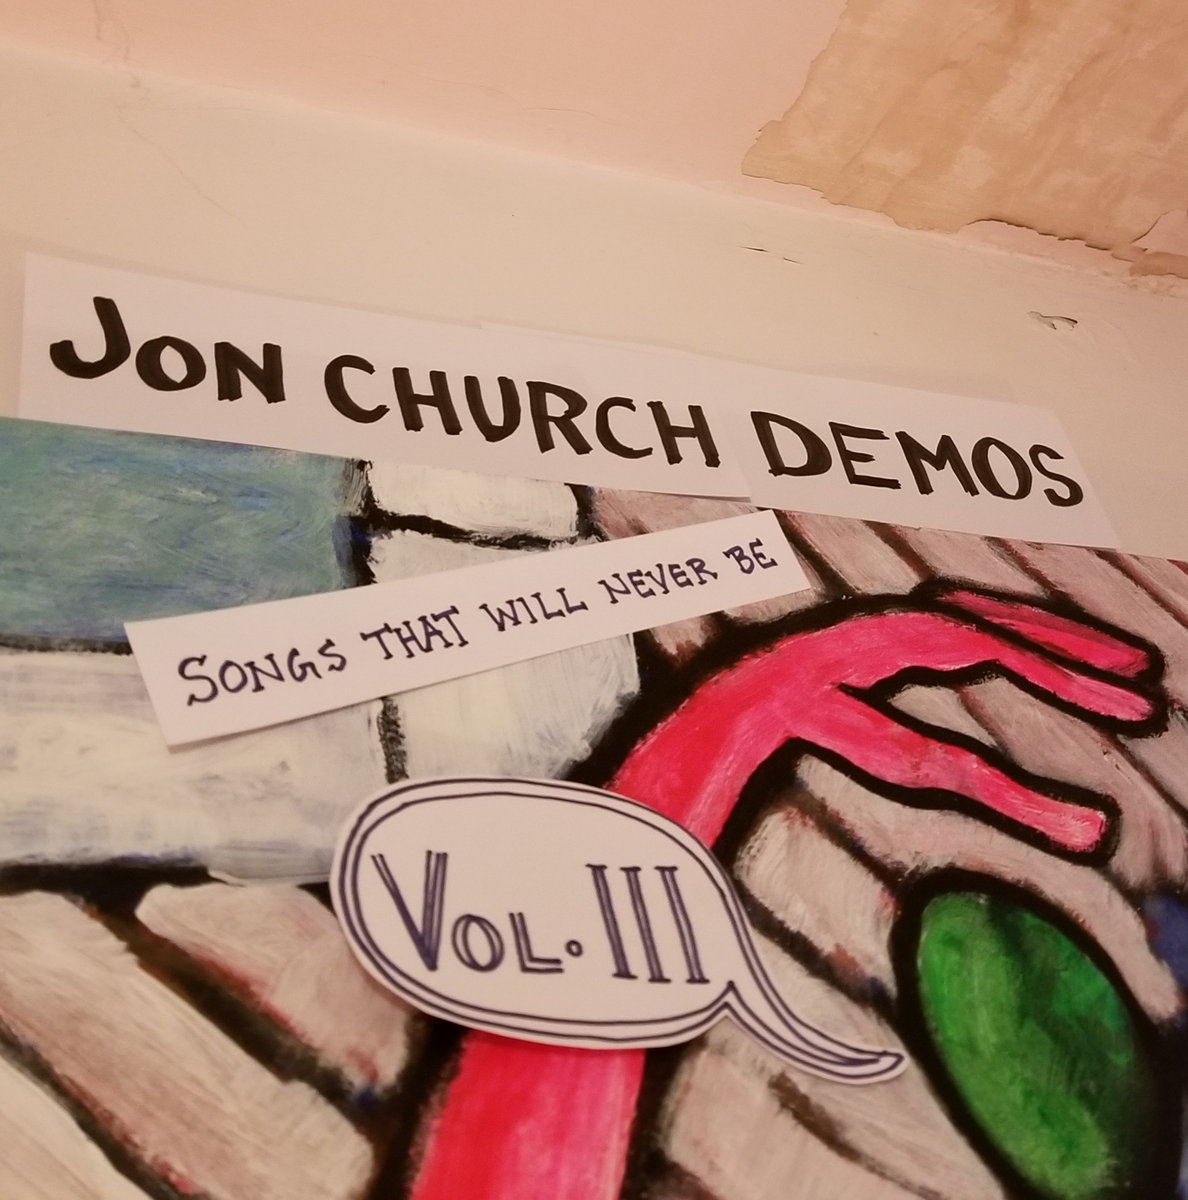 JON CHURCH DEMOS
SONGS THAT WILL NEVER BE
VOL. III